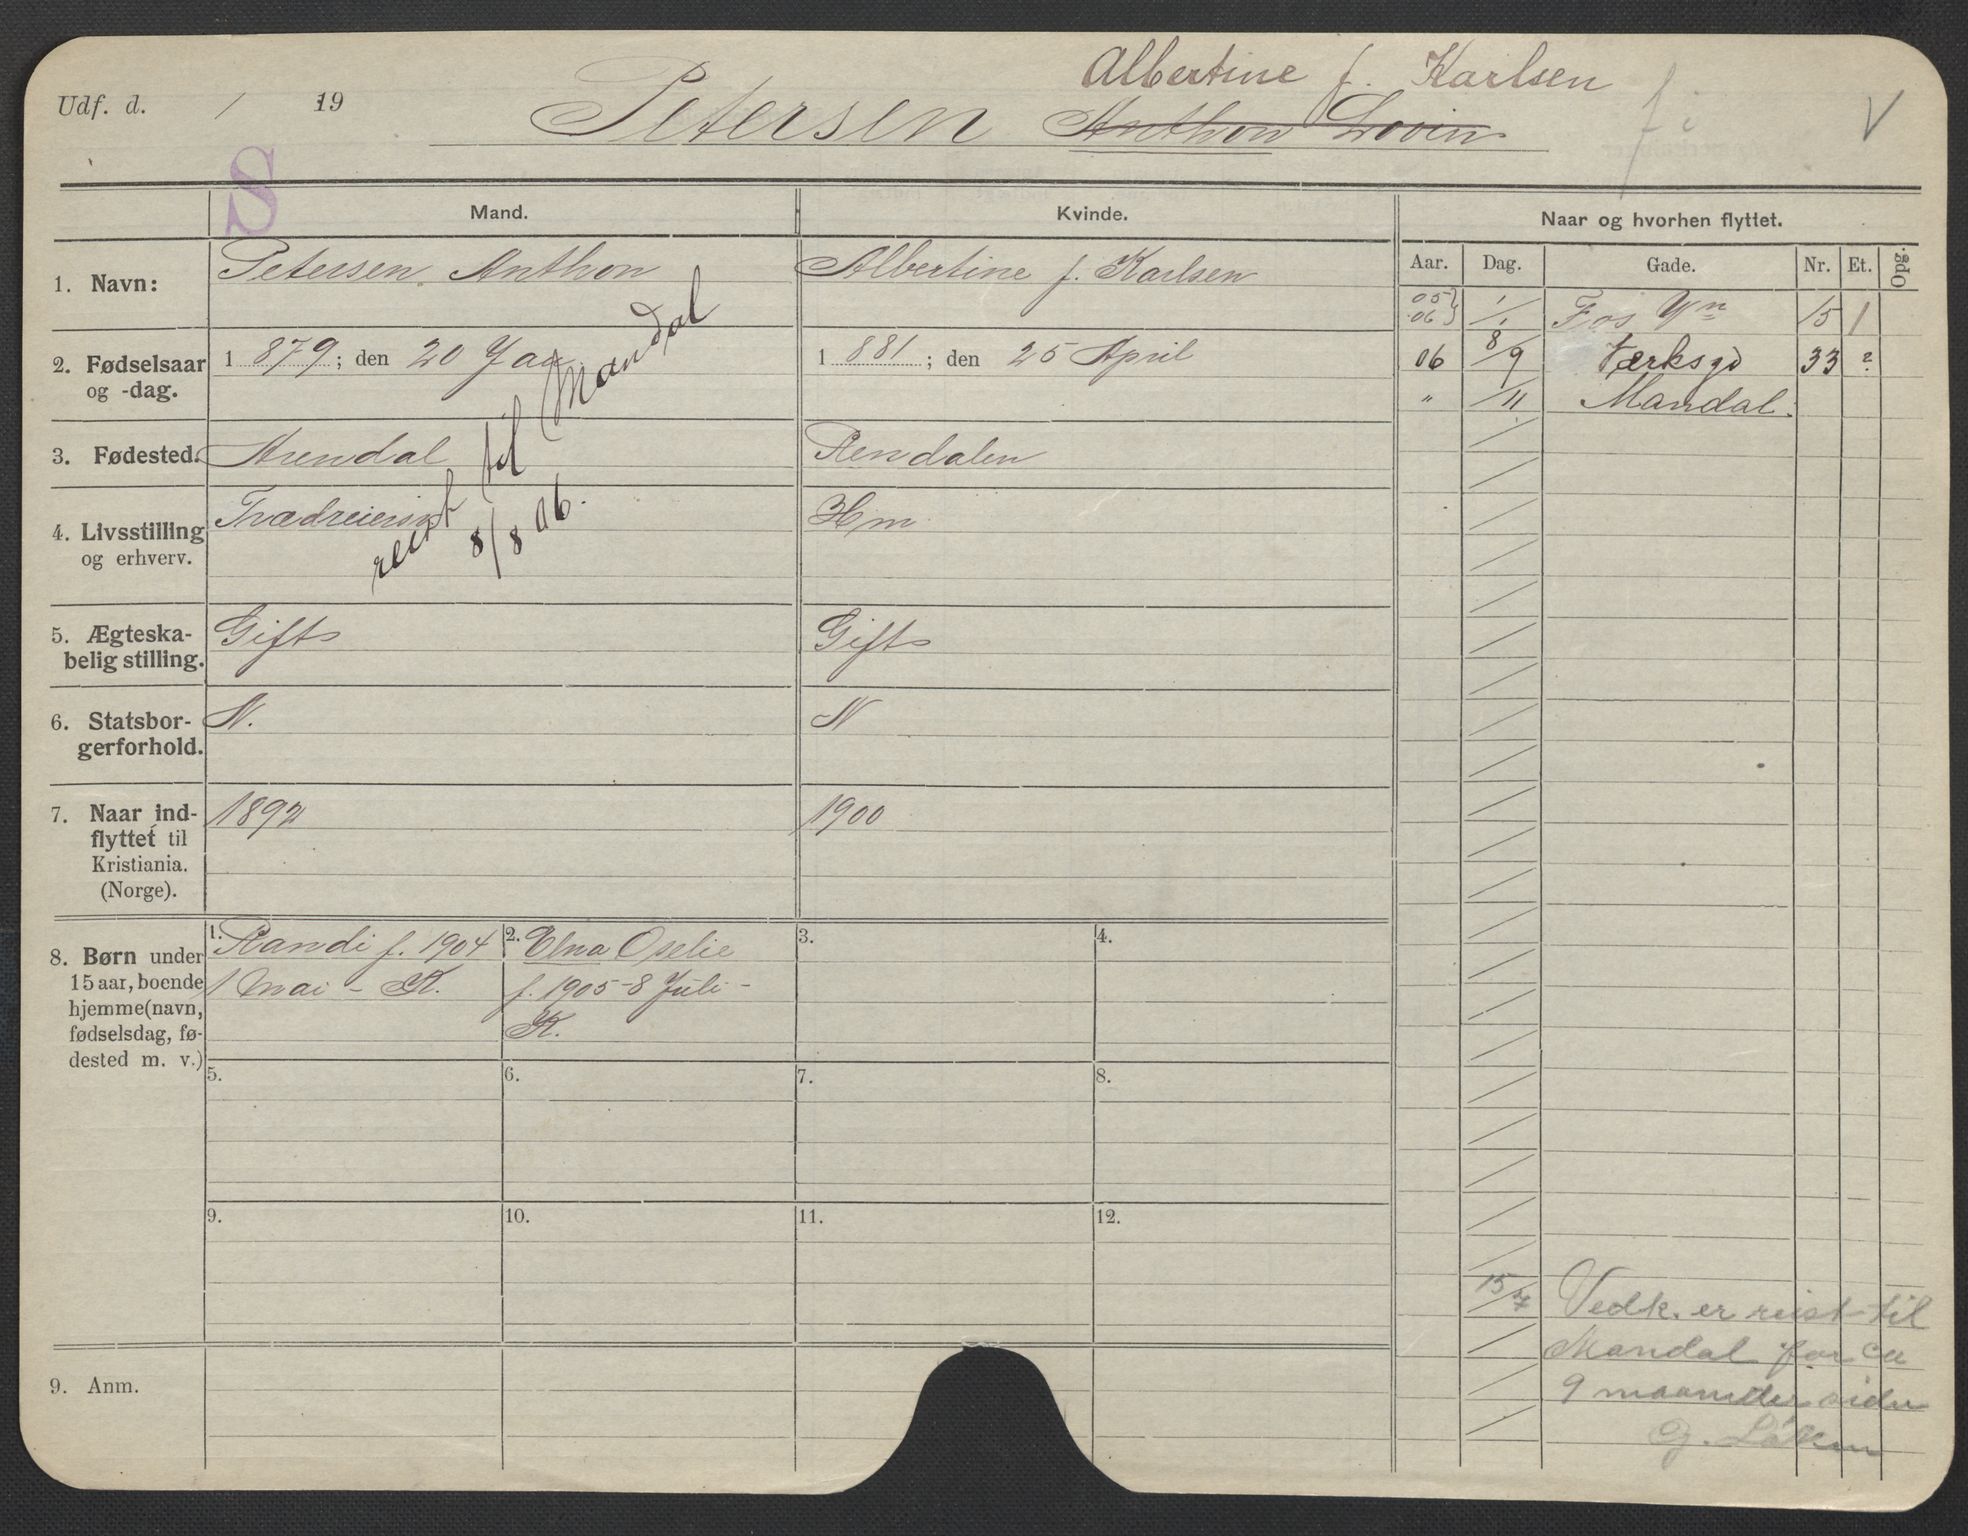 Albertine f. Karlsen
Udf. d. / 19
Petersen Anthon Lovin
V
S
Mand.
Kvinde.
Naar og hvorhen flyttet.
Aar. Dag. Gade. Nr. Et. Opg.
1. Navn: Petersen Anthon
Albertine f. Karlsen
05 } 1/1
06 }
15 1
2. Fødselsaar
og -dag.
1 879; den 20 Jan
1 881; den 25 April
06 8/9 Værksgd 33 ?
" /11 Mandal.
3. Fødested. Arendal
Rendalen
4. Livsstilling
og erhverv.
Trædreiersv
Hm
reist til Mandal
8/8 06.
5. Ægteska-
belig stilling.
Gift
Gift
6. Statsbor-
gerforhold.
N.
N
7. Naar ind-
flyttet til
Kristiania.
(Norge).
1892
1900
8. Børn under
15 aar, boende
hjemme (navn,
fødselsdag, fø-
dested m. v.)
1. Randi f. 1904
1 Mai - K.
2. Elna Oselie
f. 1905 - 8 Juli -
K.
3.
4.
5.
6.
7.
8.
9.
10.
11.
12.
15/7 Vedk. er reist til
Mandal for ca
9 maaneder siden
G. Løken
9. Anm.